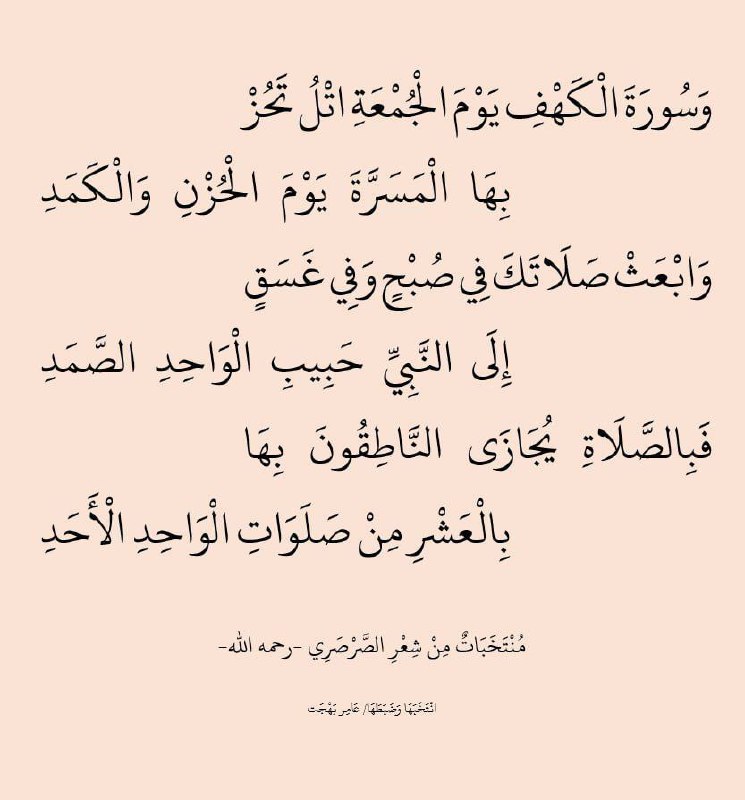 وَسُورَةَ الْكَهْفِ يَوْمَ الْجُمْعَةِ اتْلُ تَحُزْ
بِهَا الْمَسَرَّةَ يَوْمَ الْحُزْنِ وَالْكَمَدِ
وَابْعَثْ صَلَاتَكَ فِي صُبْحٍ وَفِي غَسَقٍ
إِلَى النَّبِيِّ حَبِيبِ الْوَاحِدِ الصَّمَدِ
فَبِالصَّلَاةِ يُجَازَى النَّاطِقُونَ بِهَا
بِالْعَشْرِ مِنْ صَلَوَاتِ الْوَاحِدِ الْأَحَدِ
مُنْتَخَبَاتٌ مِنْ شِعْرِ الصَّرْصَرِي -رحمه الله-
انْتَخَبَهَا وَضَبَطَهَا/ عَامِر بَهْجَت